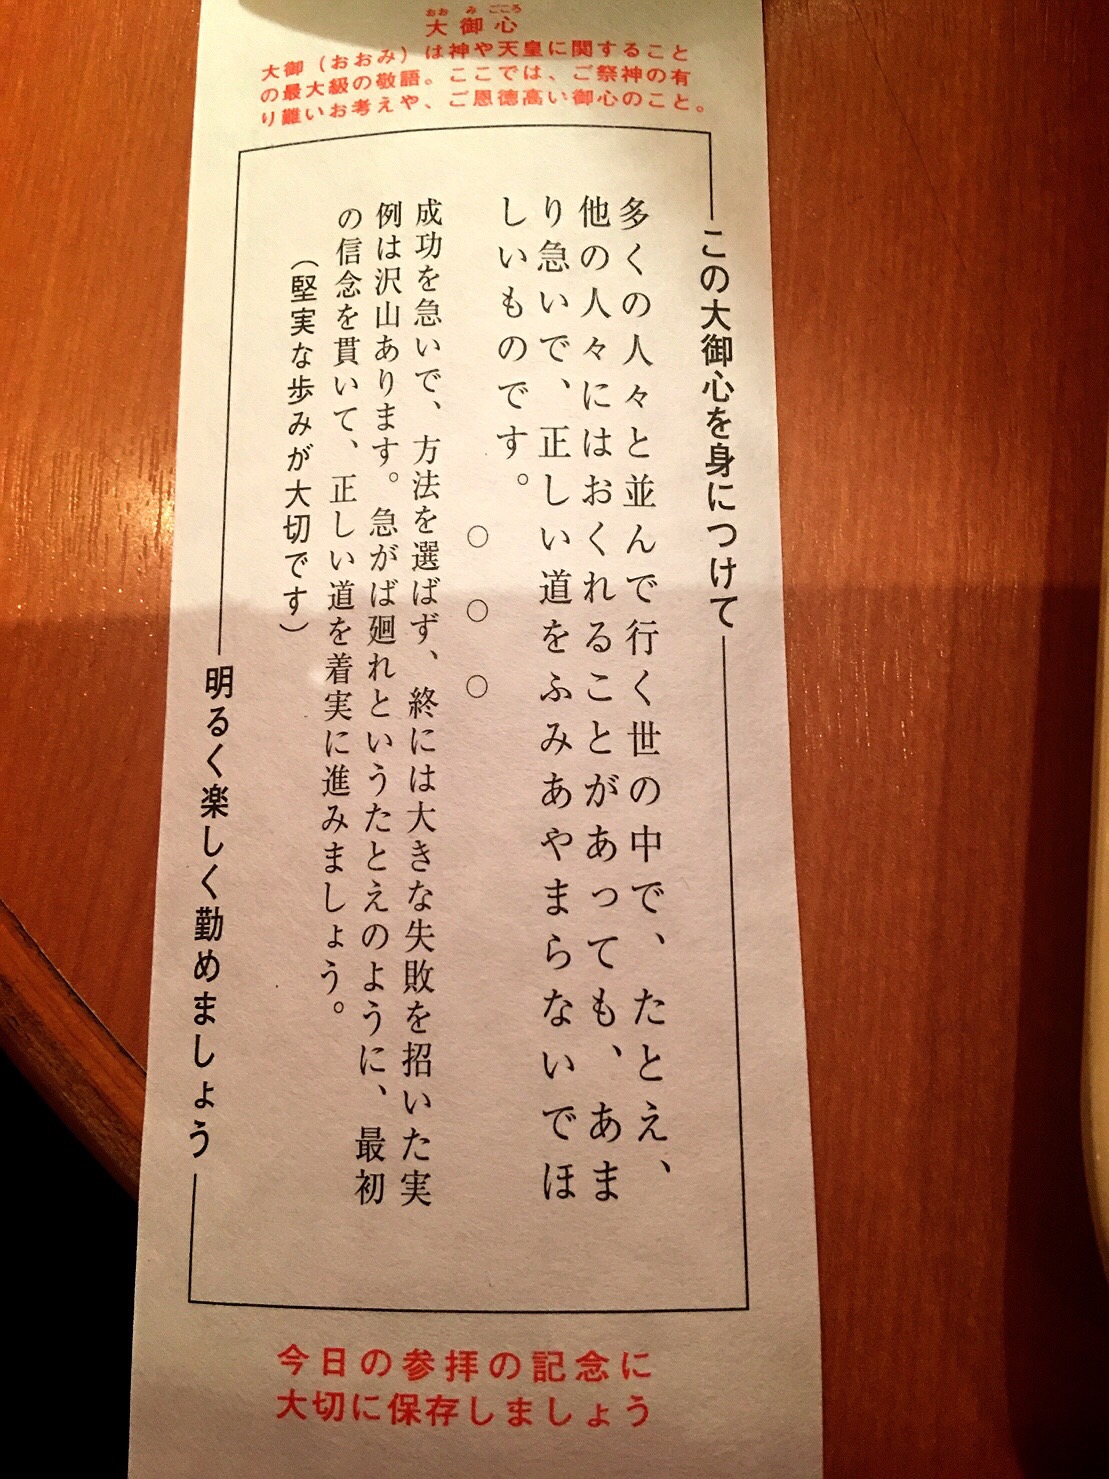 おおみごころ
大御心
大御（おおみ）は神や天皇に関すること
の最大級の敬語。ここでは、ご祭神の有
り難いお考えや、ご恩徳高い御心のこと。
この大御心を身につけて
多くの人々と並んで行く世の中で、たとえ、
他の人々にはおくれることがあっても、あま
り急いで、正しい道をふみあやまらないでほ
しいものです。
○ ○ ○
成功を急いで、方法を選ばず、終には大きな失敗を招いた実
例は沢山あります。急がば廻れというたとえのように、最初
の信念を貫いて、正しい道を着実に進みましょう。
（堅実な歩みが大切です）
明るく楽しく勤めましょう
今日の参拝の記念に
大切に保存しましょう